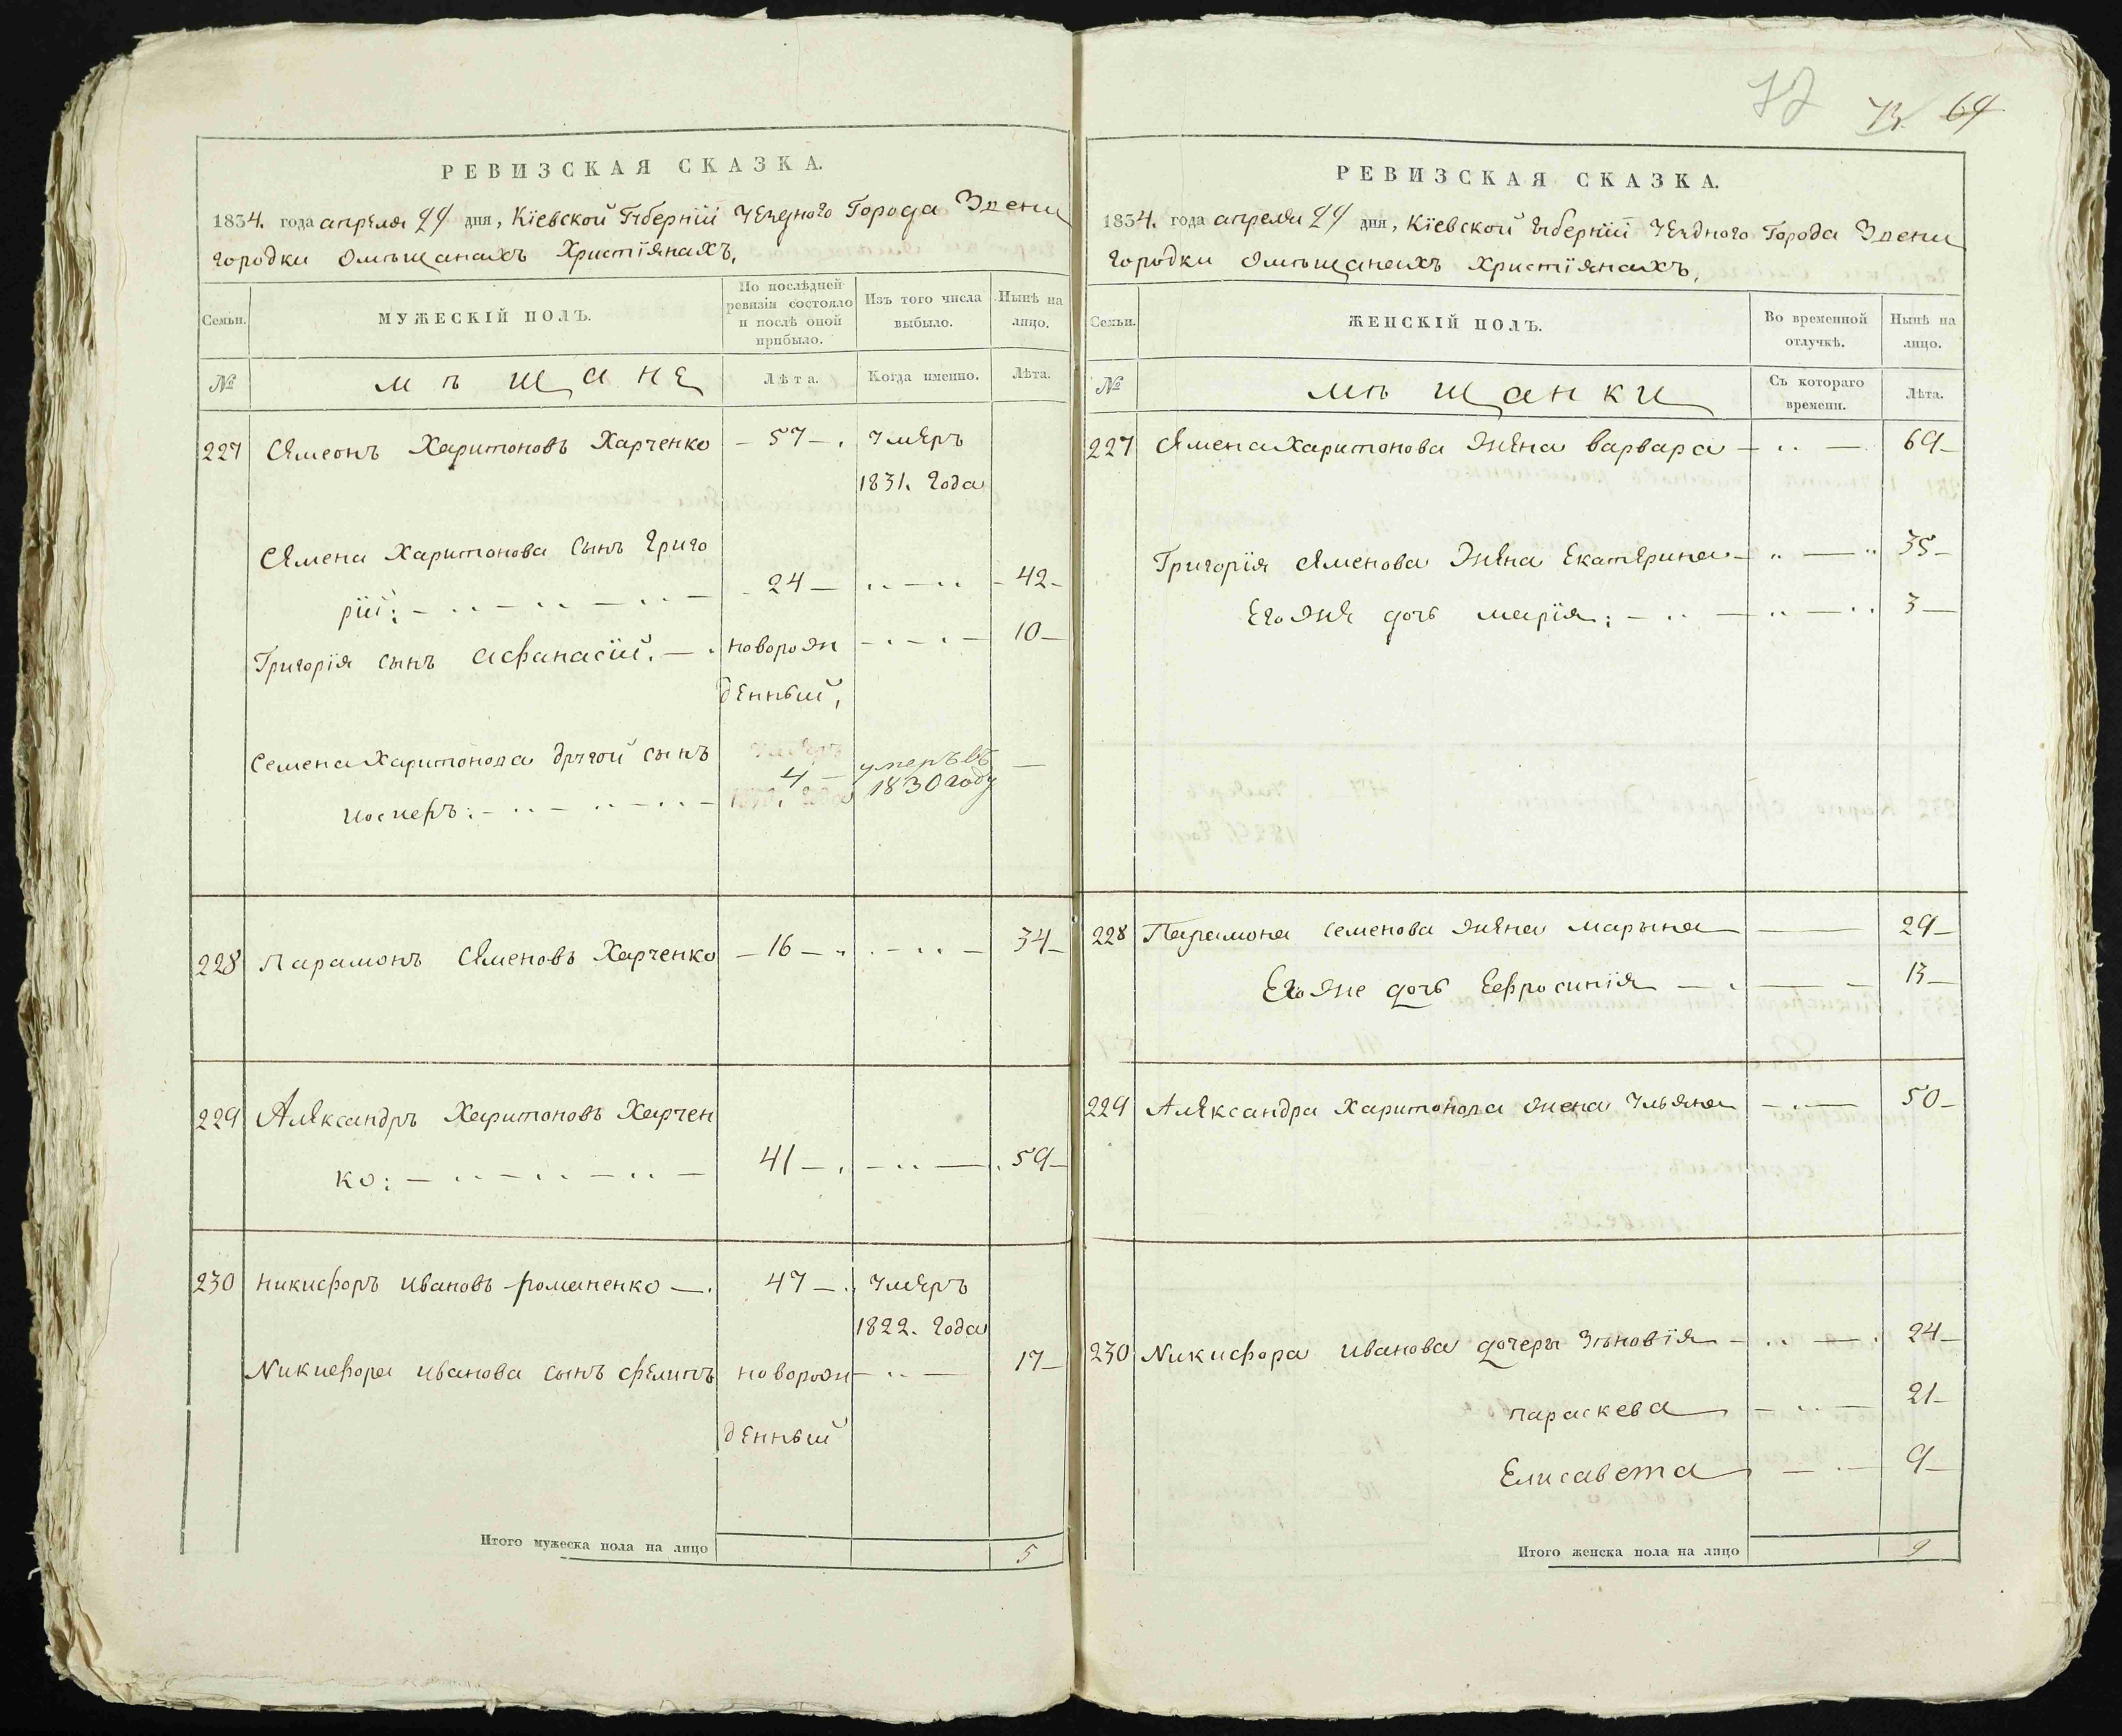 72 73. 64
РЕВИЗСКАЯ СКАЗКА.
1834. года апреля 24 дня, Кіевской Губерніи Уезднаго Города Звени
городки Омѣщанахъ Христіянахъ,
Семьи.
МУЖЕСКІЙ ПОЛЪ.
По послѣдней ревизіи состояло и послѣ оной прибыло.
Изъ того числа выбыло.
Нынѣ на лицо.
№
мѣщане
Лѣта.
Когда именно.
Лѣта.
227 Семеонъ Харитоновъ Харченко — 57 — умеръ
1831. года
Семена Харитонова сынъ Григо
рій: 24 — 42 —
Григорія сынъ Афанасій. — новорож — 10 —
денный,
Семена Харитонова другой сынъ
Иосифъ: 4 — умеръ въ 1830 году —
228 Парамонъ Семеновъ Харченко — 16 — 34 —
229 Александръ Харитоновъ Харчен
ко: 41 — 59 —
230 Никифоръ Ивановъ Романенко — 47 — умеръ
1822. года
Никифора Иванова сынъ Филипъ новорож — 17 —
денный
Итого мужеска пола на лицо 5
РЕВИЗСКАЯ СКАЗКА.
1834. года апреля 24 дня, Кіевской Губерніи Уезднаго Города Звени
городки Омѣщанахъ Христіянахъ,
Семьи.
ЖЕНСКІЙ ПОЛЪ.
Во временной отлучкѣ.
Нынѣ на лицо.
№
мѣщанки
Съ котораго времени.
Лѣта.
227 Семена Харитонова жена Варвара — 69 —
Григорія Семенова жена Екатерина — 35 —
Его же дочь Марія: — 3 —
228 Парамона Семенова жена Марына — 29 —
Его же дочь Ефросинія — 13 —
229 Александра Харитонова жена Ульяна — 50 —
230 Никифора Иванова дочеры Зѣновія — 24 —
Параскева — 21 —
Елисавета — 9 —
Итого женска пола на лицо 9